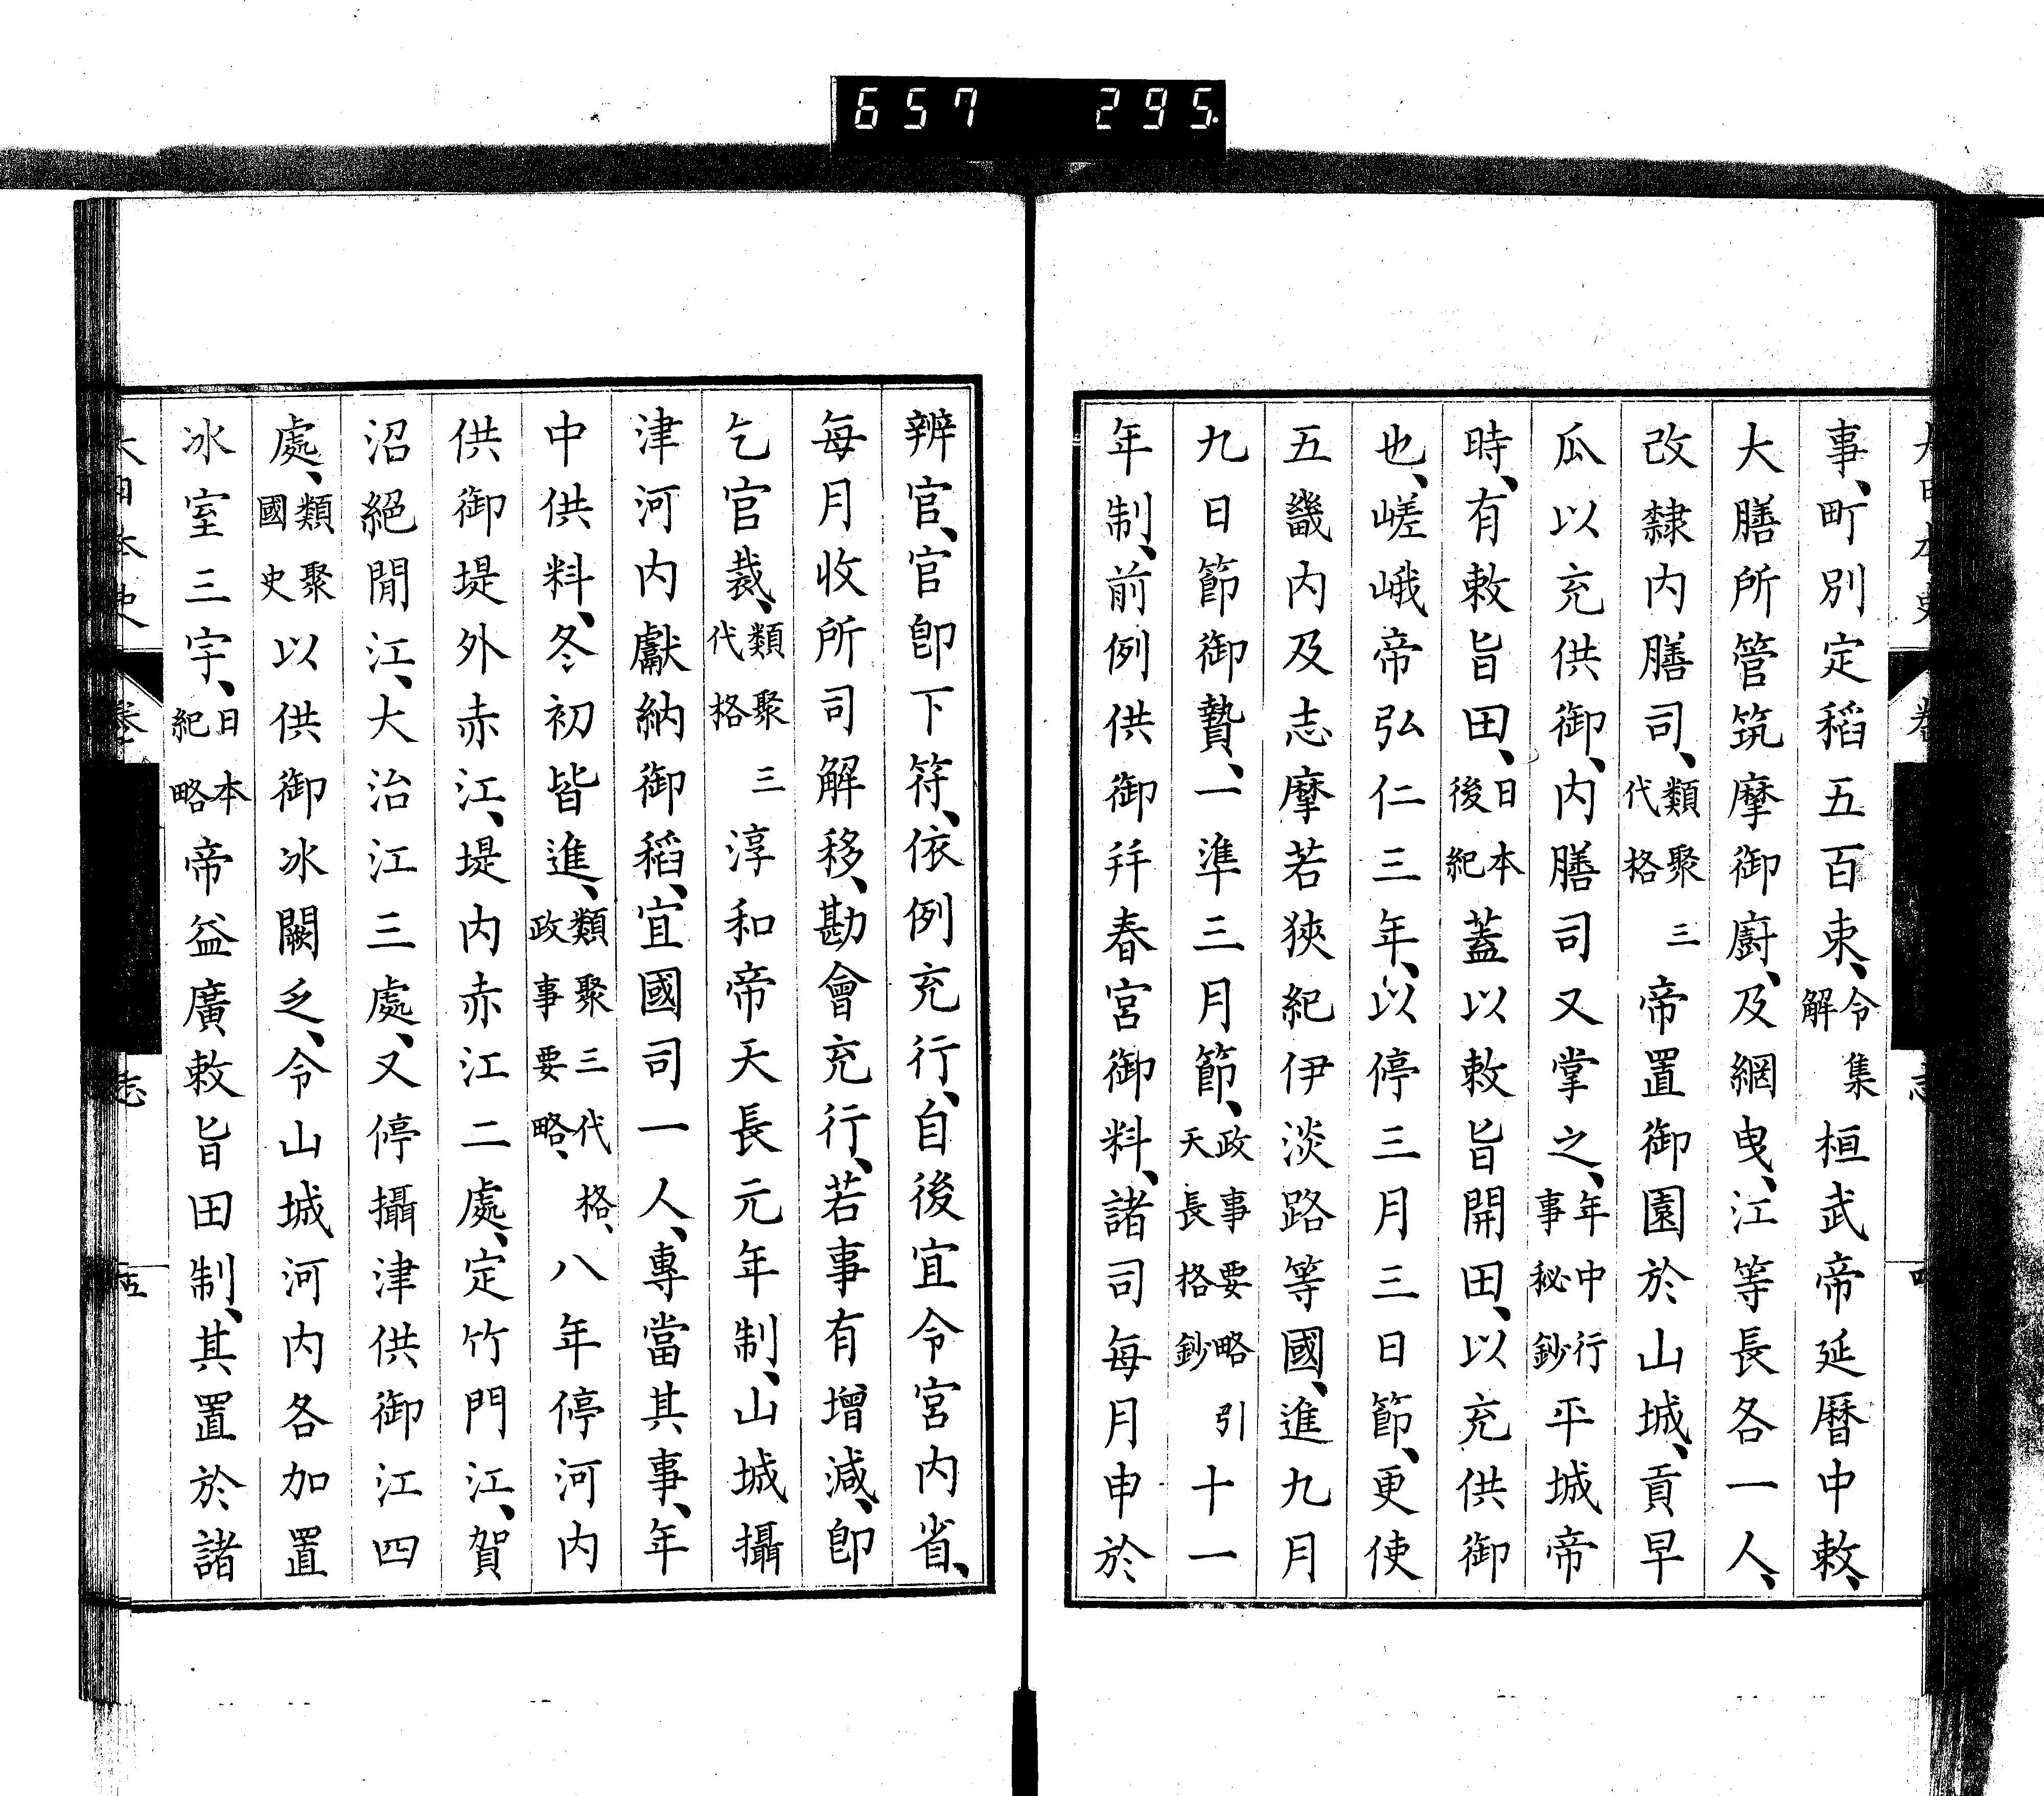 657 295.
事、町別定稻五百束、令集解桓武帝延曆中敕、
大膳所管筑摩御廚、及網曳、江等長各一人、
改隸内膳司、類聚三代格帝置御園於山城、貢早
瓜以充供御、内膳司又掌之、年中行事秘鈔平城帝
時、有敕旨田、日本後紀蓋以敕旨開田、以充供御
也、嵯峨帝弘仁三年、以停三月三日節、更使
五畿内及志摩若狹紀伊淡路等國、進九月
九日節御贄、一準三月節、政事要略引天長格鈔十一
年制、前例供御幷春宮御料、諸司每月申於
辨官、官卽下符、依例充行、自後宜令宮内省、
每月收所司解移、勘會充行、若事有增減、卽
乞官裁、類聚三代格淳和帝天長元年制、山城攝
津河内獻納御稻、宜國司一人、專當其事、年
中供料、冬初皆進、類聚三代格、政事要略、八年停河内
供御堤外赤江、堤内赤江二處、定竹門江、賀
沼絕閒江、大治江三處、又停攝津供御江四
處、類聚國史以供御冰闕乏、令山城河内各加置
冰室三宇、日本紀略帝益廣敕旨田制、其置於諸
大日本史 卷 志 五